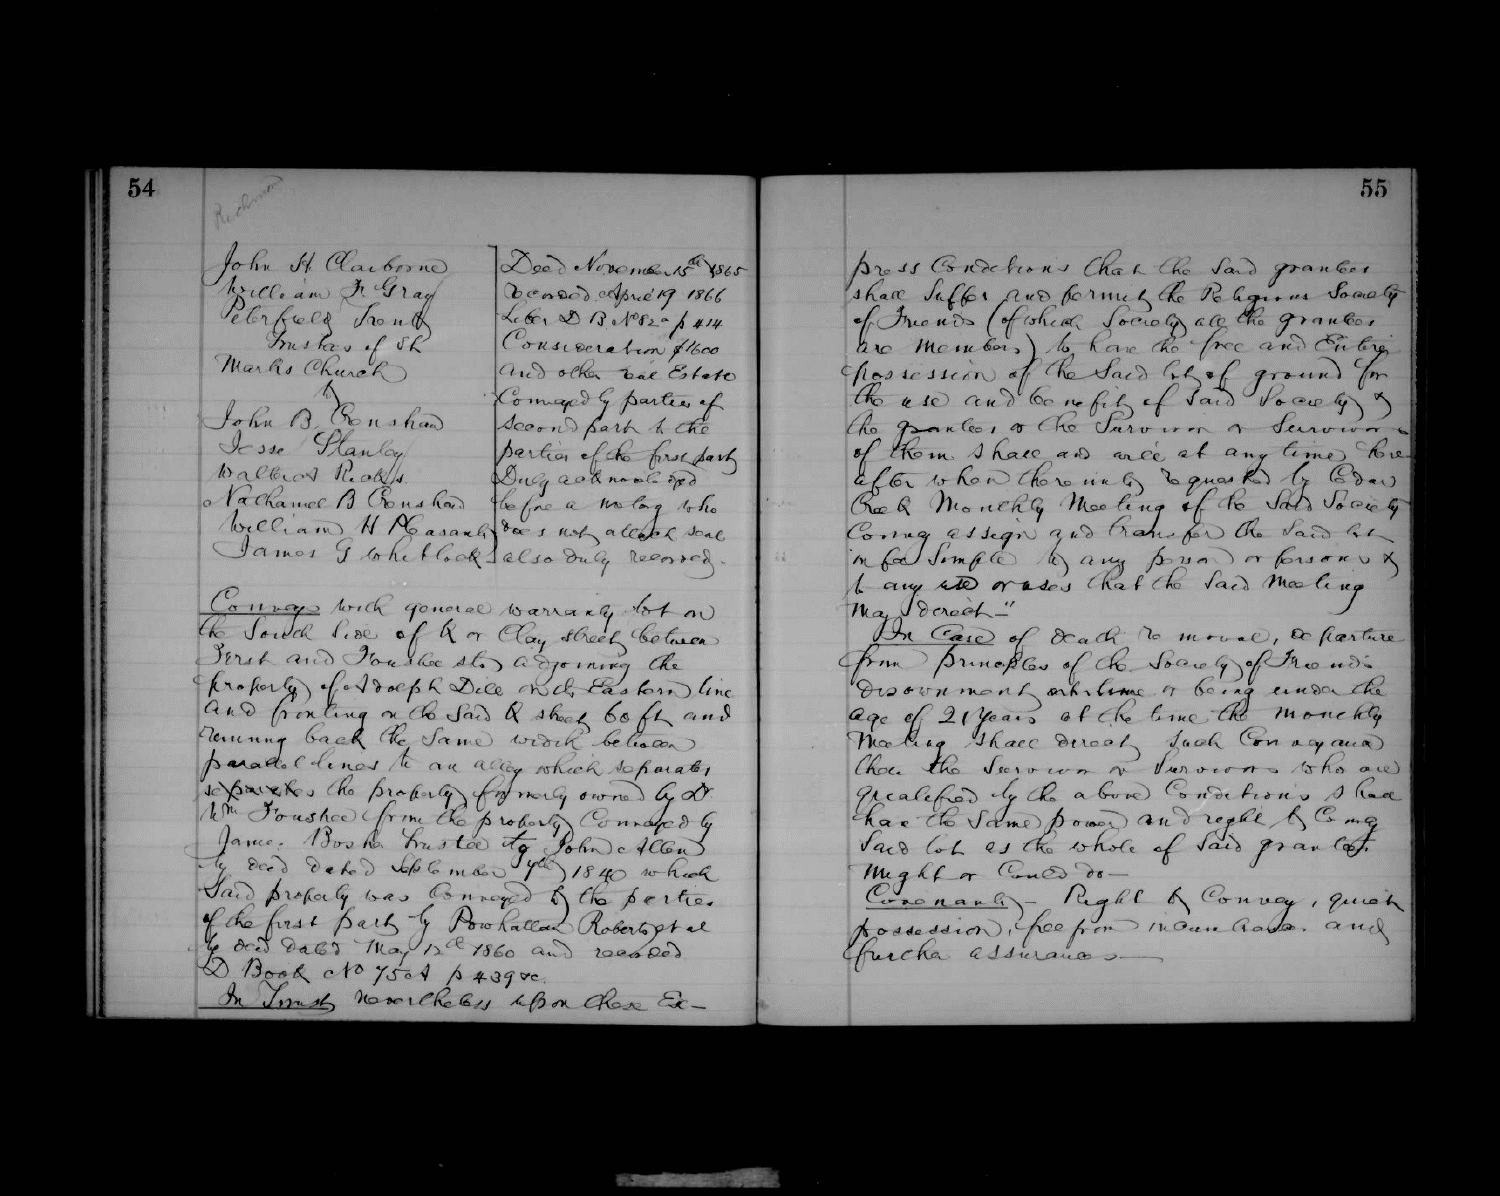 54
Richmond
John H Claiborne
William F Gray
Peterfield Trent
Trustees of St
Marks Church
to
John B. Crenshaw
Jesse Stanley
Walter A Ricks
Nathaniel B Crenshaw
William H Pleasants
James G Whitlock
Deed November 15th 1865
recorded April 19 1866
Liber D B No 82a p 414
Consideration $1600
and other real Estate
Conveyed by parties of
second part to the
parties of the first part
Duly acknowledged
before a notary who
does not attach seal
also duly recorded.
Convey with general warranty lot on
the South Side of K or Clay street between
First and Foushee sts adjoining the
property of Adolph Dill on its Eastern line
and fronting on the Said K street 60 ft and
running back the Same width between
paralel lines to an alley which separates
separates the property formerly owned by Dr
Wm Foushee from the property Conveyed by
James Bosher Trustee to John Allen
by deed dated September 1840 which
Said property was Conveyed to the parties
of the first part by Powhatan Roberts et al
by deed dated May 12th 1860 and recorded
D Book No 75 A p 439 &c.
In Trust nevertheless upon these Ex-
55
press Conditions that the Said grantees
shall Suffer and permit the Religious Society
of Friends (of which Society all the grantees
are members) to have the free and Entire
possession of the Said lot of ground for
the use and benefit of Said Society &
the grantees or the Survivor or Survivors
of them shall and will at any time here
after when thereunto requested by Cedar
Creek Monthly Meeting of the Said Society
Convey assign and transfer the Said lot
in fee Simple to any person or persons &
to any use or uses that the Said Meeting
may direct-"
In Case of death removal, departure
from principles of the Society of Friends
disownment or being under the
age of 21 Years at the time the monthly
Meeting shall direct such Conveyance
then the Survivor or Survivors who are
qualified by the above Conditions shall
have the Same power and right to Convey
Said lot as the whole of Said grantees
might or Could do-
Covenants- Right to Convey, quiet
possession, free from and
further assurances-